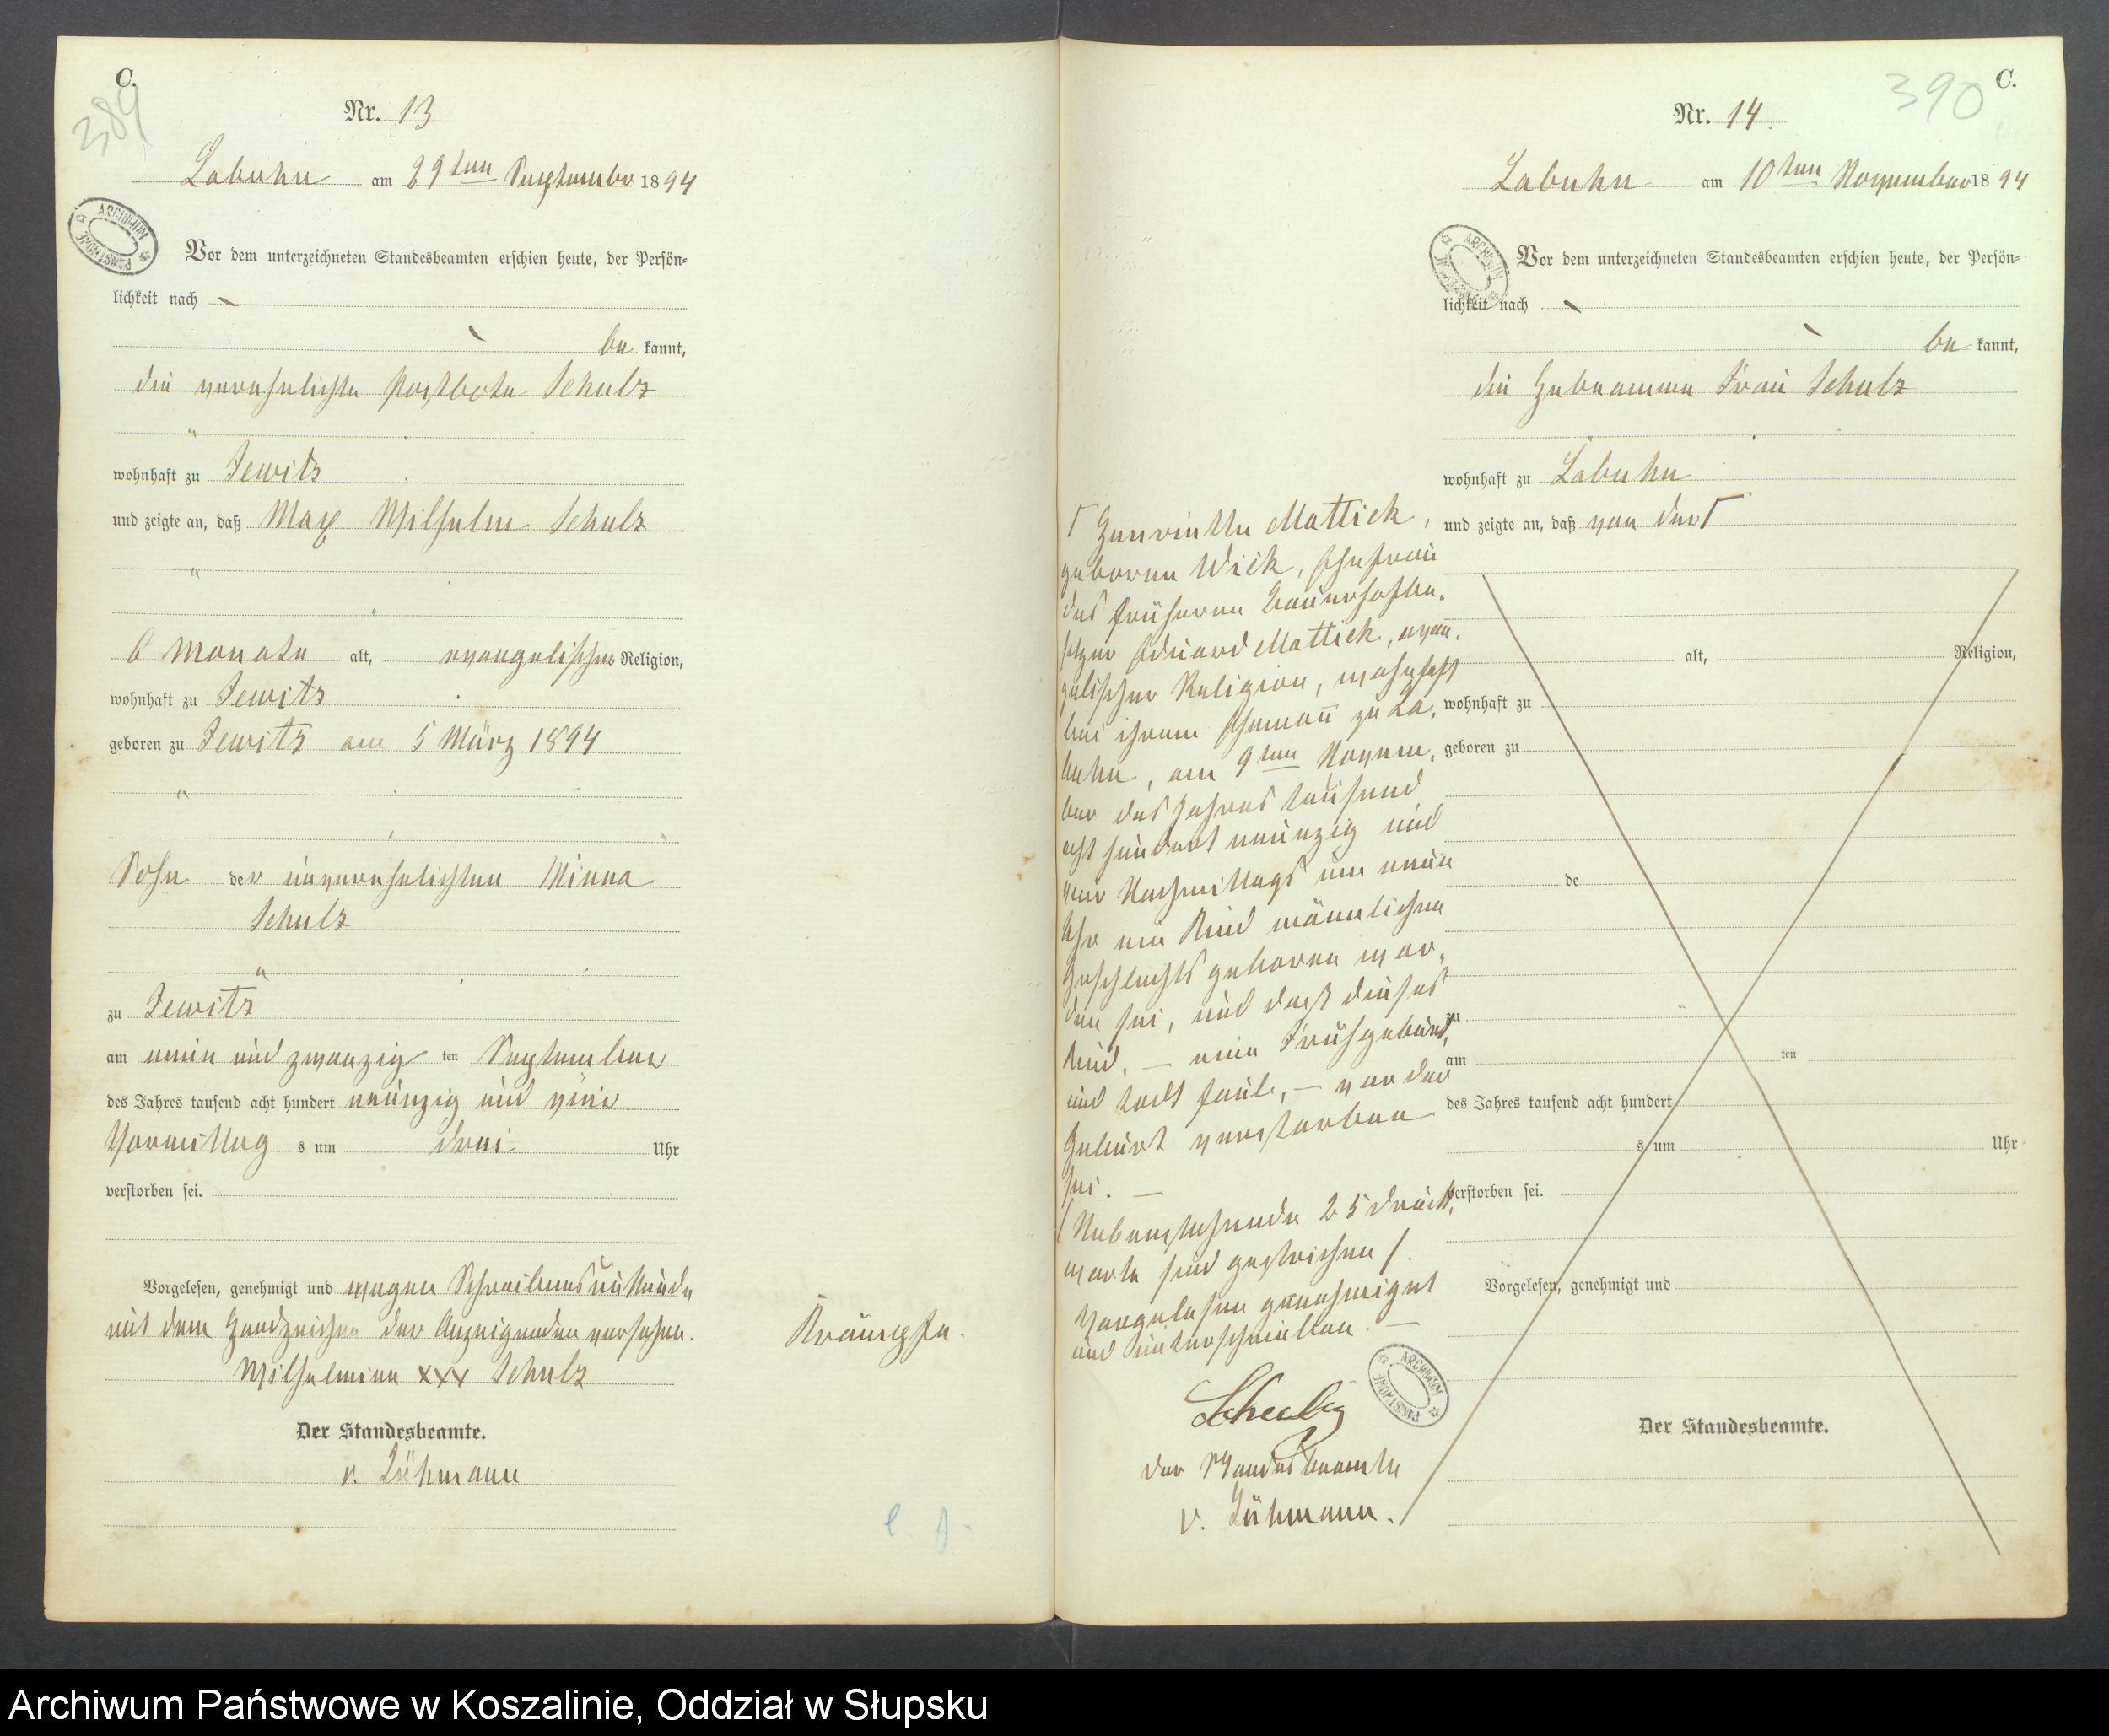 C.
389
Nr. 13
Labuhn am 29ten September 1894
ARCHIWUM PAŃSTWOWE
Vor dem unterzeichneten Standesbeamten erschien heute, der Persön-
lichkeit nach
be kannt,
die verehelichte Postbote Schulz
wohnhaft zu Jewitz
und zeigte an, daß Max Wilhelm Schulz
6 Monate alt, evangelischer Religion,
wohnhaft zu Jewitz
geboren zu Jewitz am 5 März 1894
Sohn der unverehelichten Minna
Schulz
zu Jewitz
am neun und zwanzig ten September
des Jahres tausend acht hundert neunzig und vier
Vormittag s um drei Uhr
verstorben sei.
Vorgelesen, genehmigt und wegen Schreibensunkunde
mit dem Handzeichen der Anzeigenden versehen.
Wilhelmine xxx Schulz
Der Standesbeamte.
v. Lühmann
Krämpfe.
C.
390
Nr. 14.
Labuhn am 10ten November 1894
ARCHIWUM
Vor dem unterzeichneten Standesbeamten erschien heute, der Persön-
lichkeit nach
be kannt,
die Hebeamme Frau Schulz
wohnhaft zu Labuhn
und zeigte an, daß von der Γ
Γ Henriette Mattick,
geborene Wick, Ehefrau
des früheren Bauerhofbe-
sitzer Eduard Mattick, evan-
gelischer Religion, wohnhaft
bei ihrem Ehemann zu La-
buhn, am 9ten Novem-
ber des Jahres tausend
acht hundert neunzig und
vier Nachmittags um neun
Uhr ein Kind männlichen
Geschlechts geboren wor-
den sei, und daß dieses
Kind, — eine Frühgeburt,
und todt faule, — vor der
Geburt verstorben
sei. —
(Nebenstehende 25 Druck-
worte sind gestrichen).
Vorgelesen genehmigt
und unterschrieben. —
Schulz
ARCHIWUM PAŃSTWOWE
der Standesbeamte
v. Lühmann.
alt, Religion,
wohnhaft zu
geboren zu
de
zu
am ten
des Jahres tausend acht hundert
s um Uhr
verstorben sei.
Vorgelesen, genehmigt und
Der Standesbeamte.
Archiwum Państwowe w Koszalinie, Oddział w Słupsku